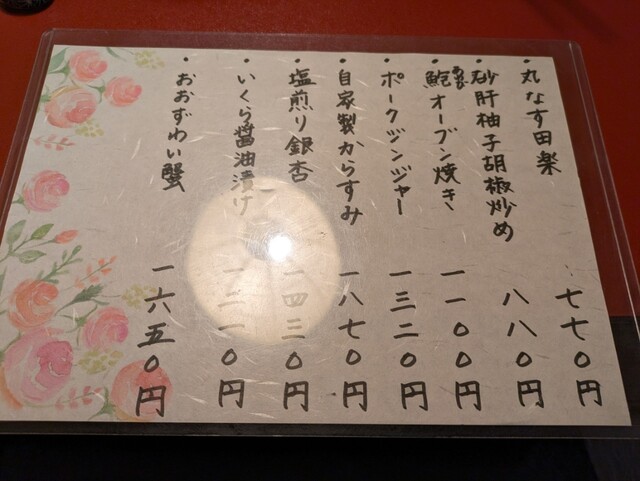 ・丸なす田楽 七七0円
・砂肝柚子胡椒炒め 八八0円
・鮑オーブン焼き 一一00円
あわび
・ポークジンジャー 一三二0円
・自家製からすみ 一八七0円
・塩煎り銀杏 一四三0円
・いくら醤油漬け 一二一0円
・おおずわい蟹 一六五0円